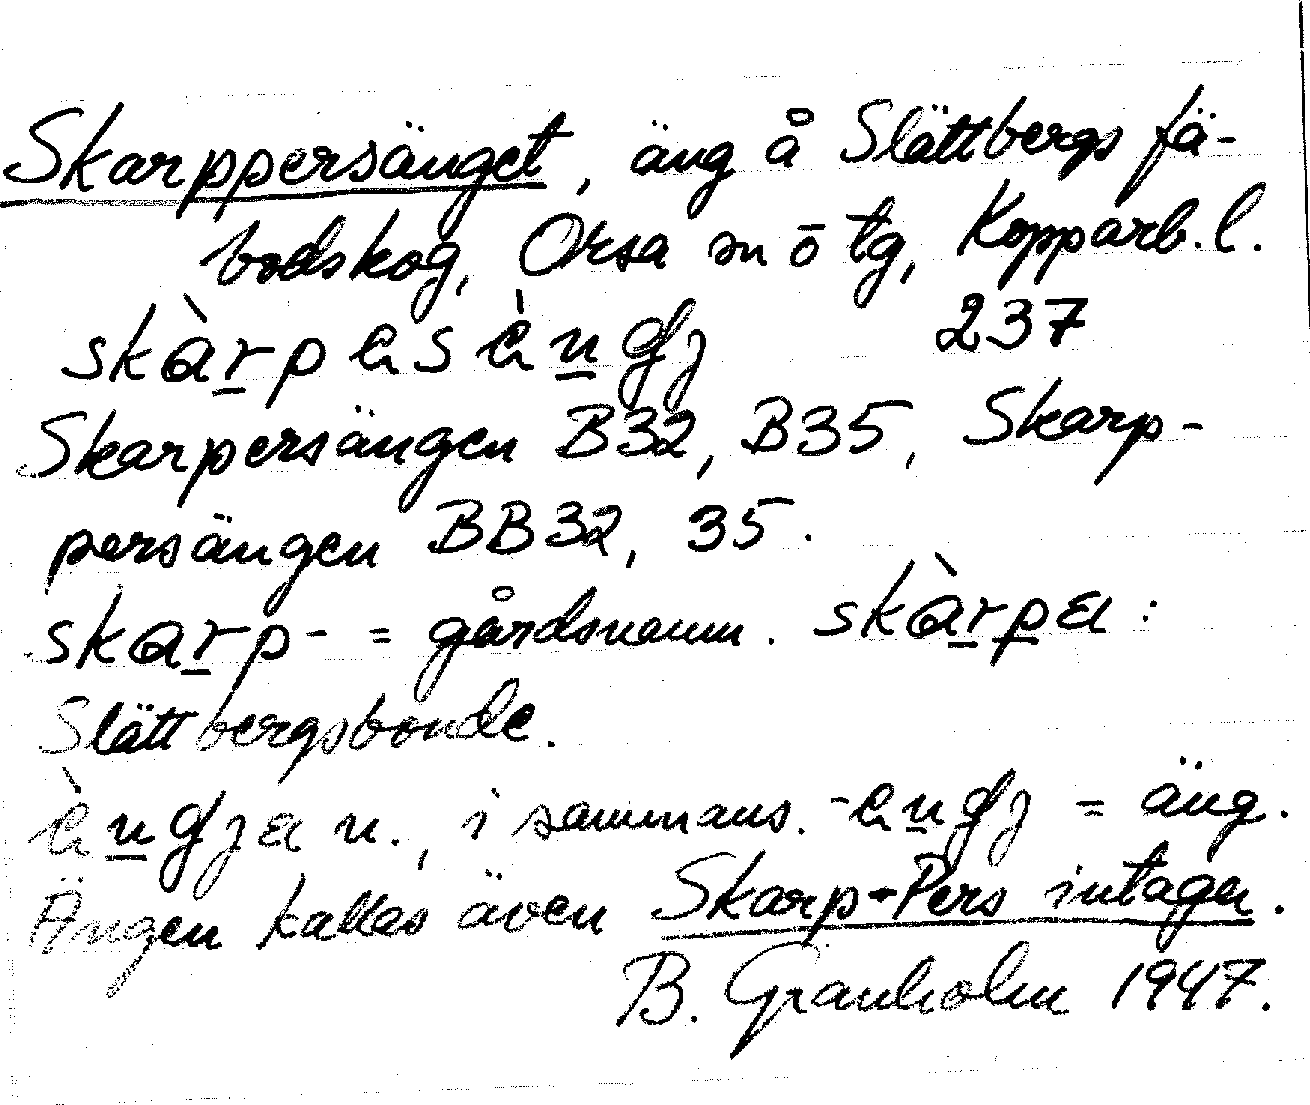 Skarppersänget, äng å Slättbergs fä-
bodskog, Orsa sn ō tg, Kopparb. l.
skàr̲pesèn̲gj 237
Skarpersängen B32, B35, Skarp-
persängen BB32, 35.
skar̲p- = gårdsnamn. skàr̲p̲a :
Slättbergsbonde.
èn̲gja n., i sammans. -en̲gj = äng.
Ängen kallas även Skarp-Pers intagen.
B. Granholm 1947.